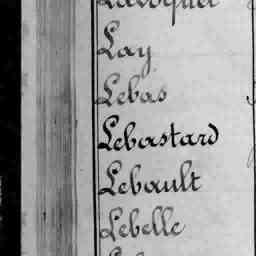 Lay
Lebas
Lebastard
Lebault
Lebelle